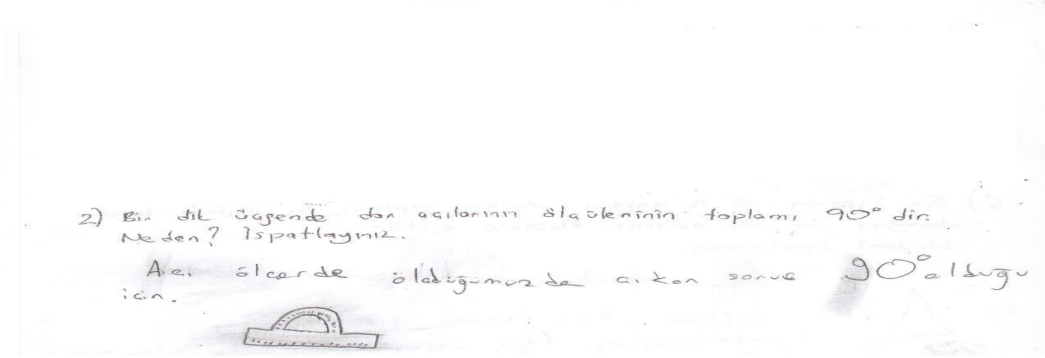 2) Bir dik üçgende dar açılarının ölçülerinin toplamı 90° dir.
Neden? İspatlayınız.
Açı ölçerde ölçtüğümüzde çıkan sonuç 90° olduğu
için.